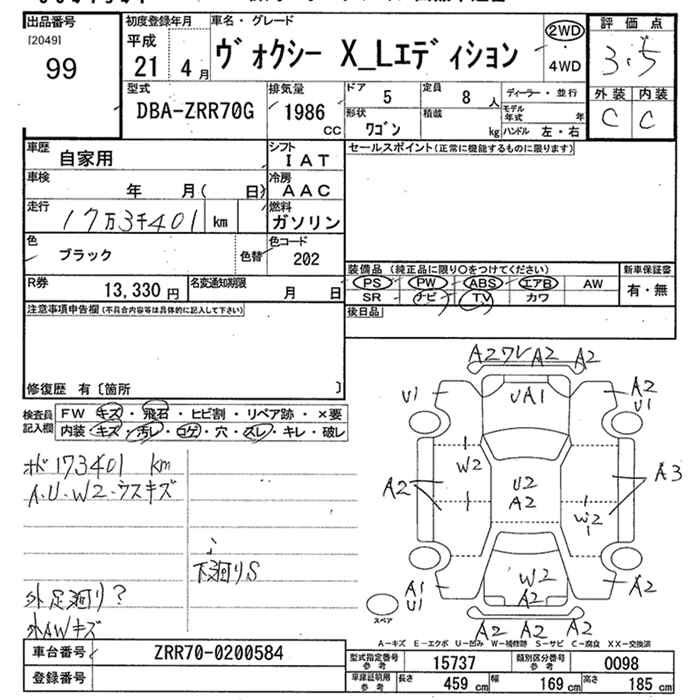 出品番号
[2049]
99
初度登録年月
平成
21 4 月
車名・グレード
ヴォクシー X_Lエディション
2WD
・
4WD
評価点
3.5
外装 内装
C C
型式
DBA-ZRR70G
排気量
1986
CC
ドア
5
定員
8 人
ディーラー・並行
形状
ワゴン
積載
kg
モデル年式 年
ハンドル 左・右
車歴
自家用
シフト
IAT
車検
年 月( 日)
冷房
AAC
走行
17万3千401 km
燃料
ガソリン
色
ブラック
色替
色コード
202
R券
13,330 円
名変通知期限
月 日
注意事項申告欄(不具合内容等は具体的に記入して下さい)
修復歴 有〔箇所 〕
セールスポイント(正常に機能するものに限ります)
装備品 (純正品に限り○をつけてください)
新車保証書
PS PW ABS エアB AW
SR ナビ TV カワ
有・無
後日品
検査員
記入欄
FW キズ・飛石・ヒビ割・リペア跡・×要
内装・キズ・汚レ・コゲ・穴・スレ・キレ・破レ
ホド173401 km
A・U・W2・ウスキズ
下廻りS
外足廻り?
外AWキズ
A2ワレ A2 A2
U1
UA1
A2
U1
W2
A2
U2
A2
A3
W2
A1
U1
W2
A2
A2
A2 A2 A2
スペア
A-キズ E-エクボ U-凹み W-補修跡 S-サビ C-腐食 XX-交換済
車台番号
ZRR70-0200584
登録番号
型式指定番号
参考
15737
類別区分番号
参考
0098
車庫証明用
参考
長さ 459 cm 幅 169 cm 高さ 185 cm